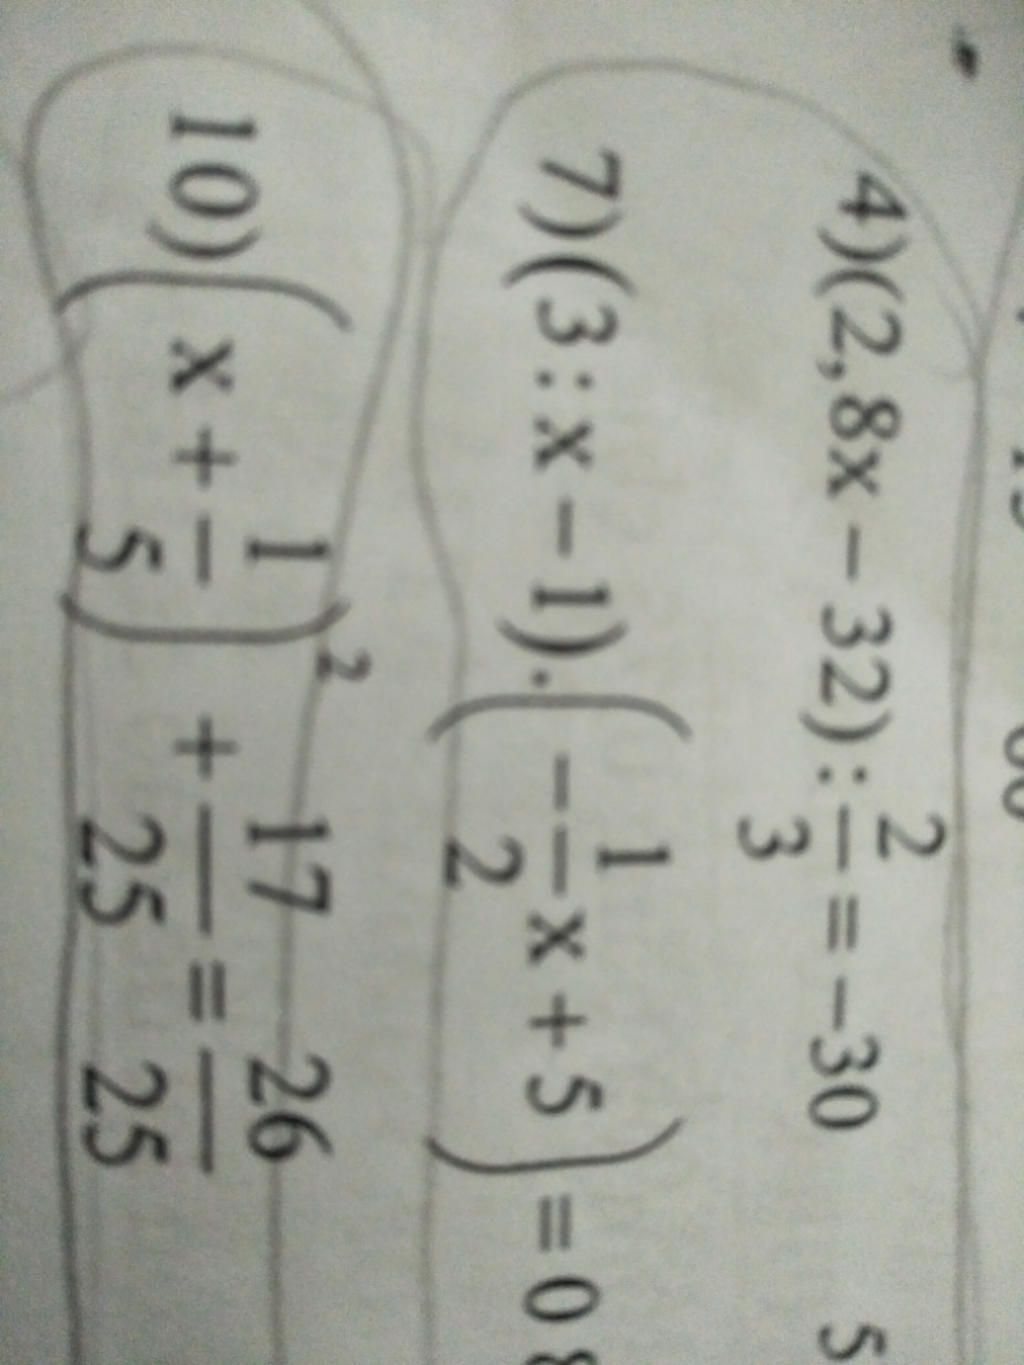 4)(2,8x − 32): 2/3 = −30
7)(3:x − 1).( − 1/2 x + 5 ) = 0
10)( x + 1/5 )² + 17/25 = 26/25